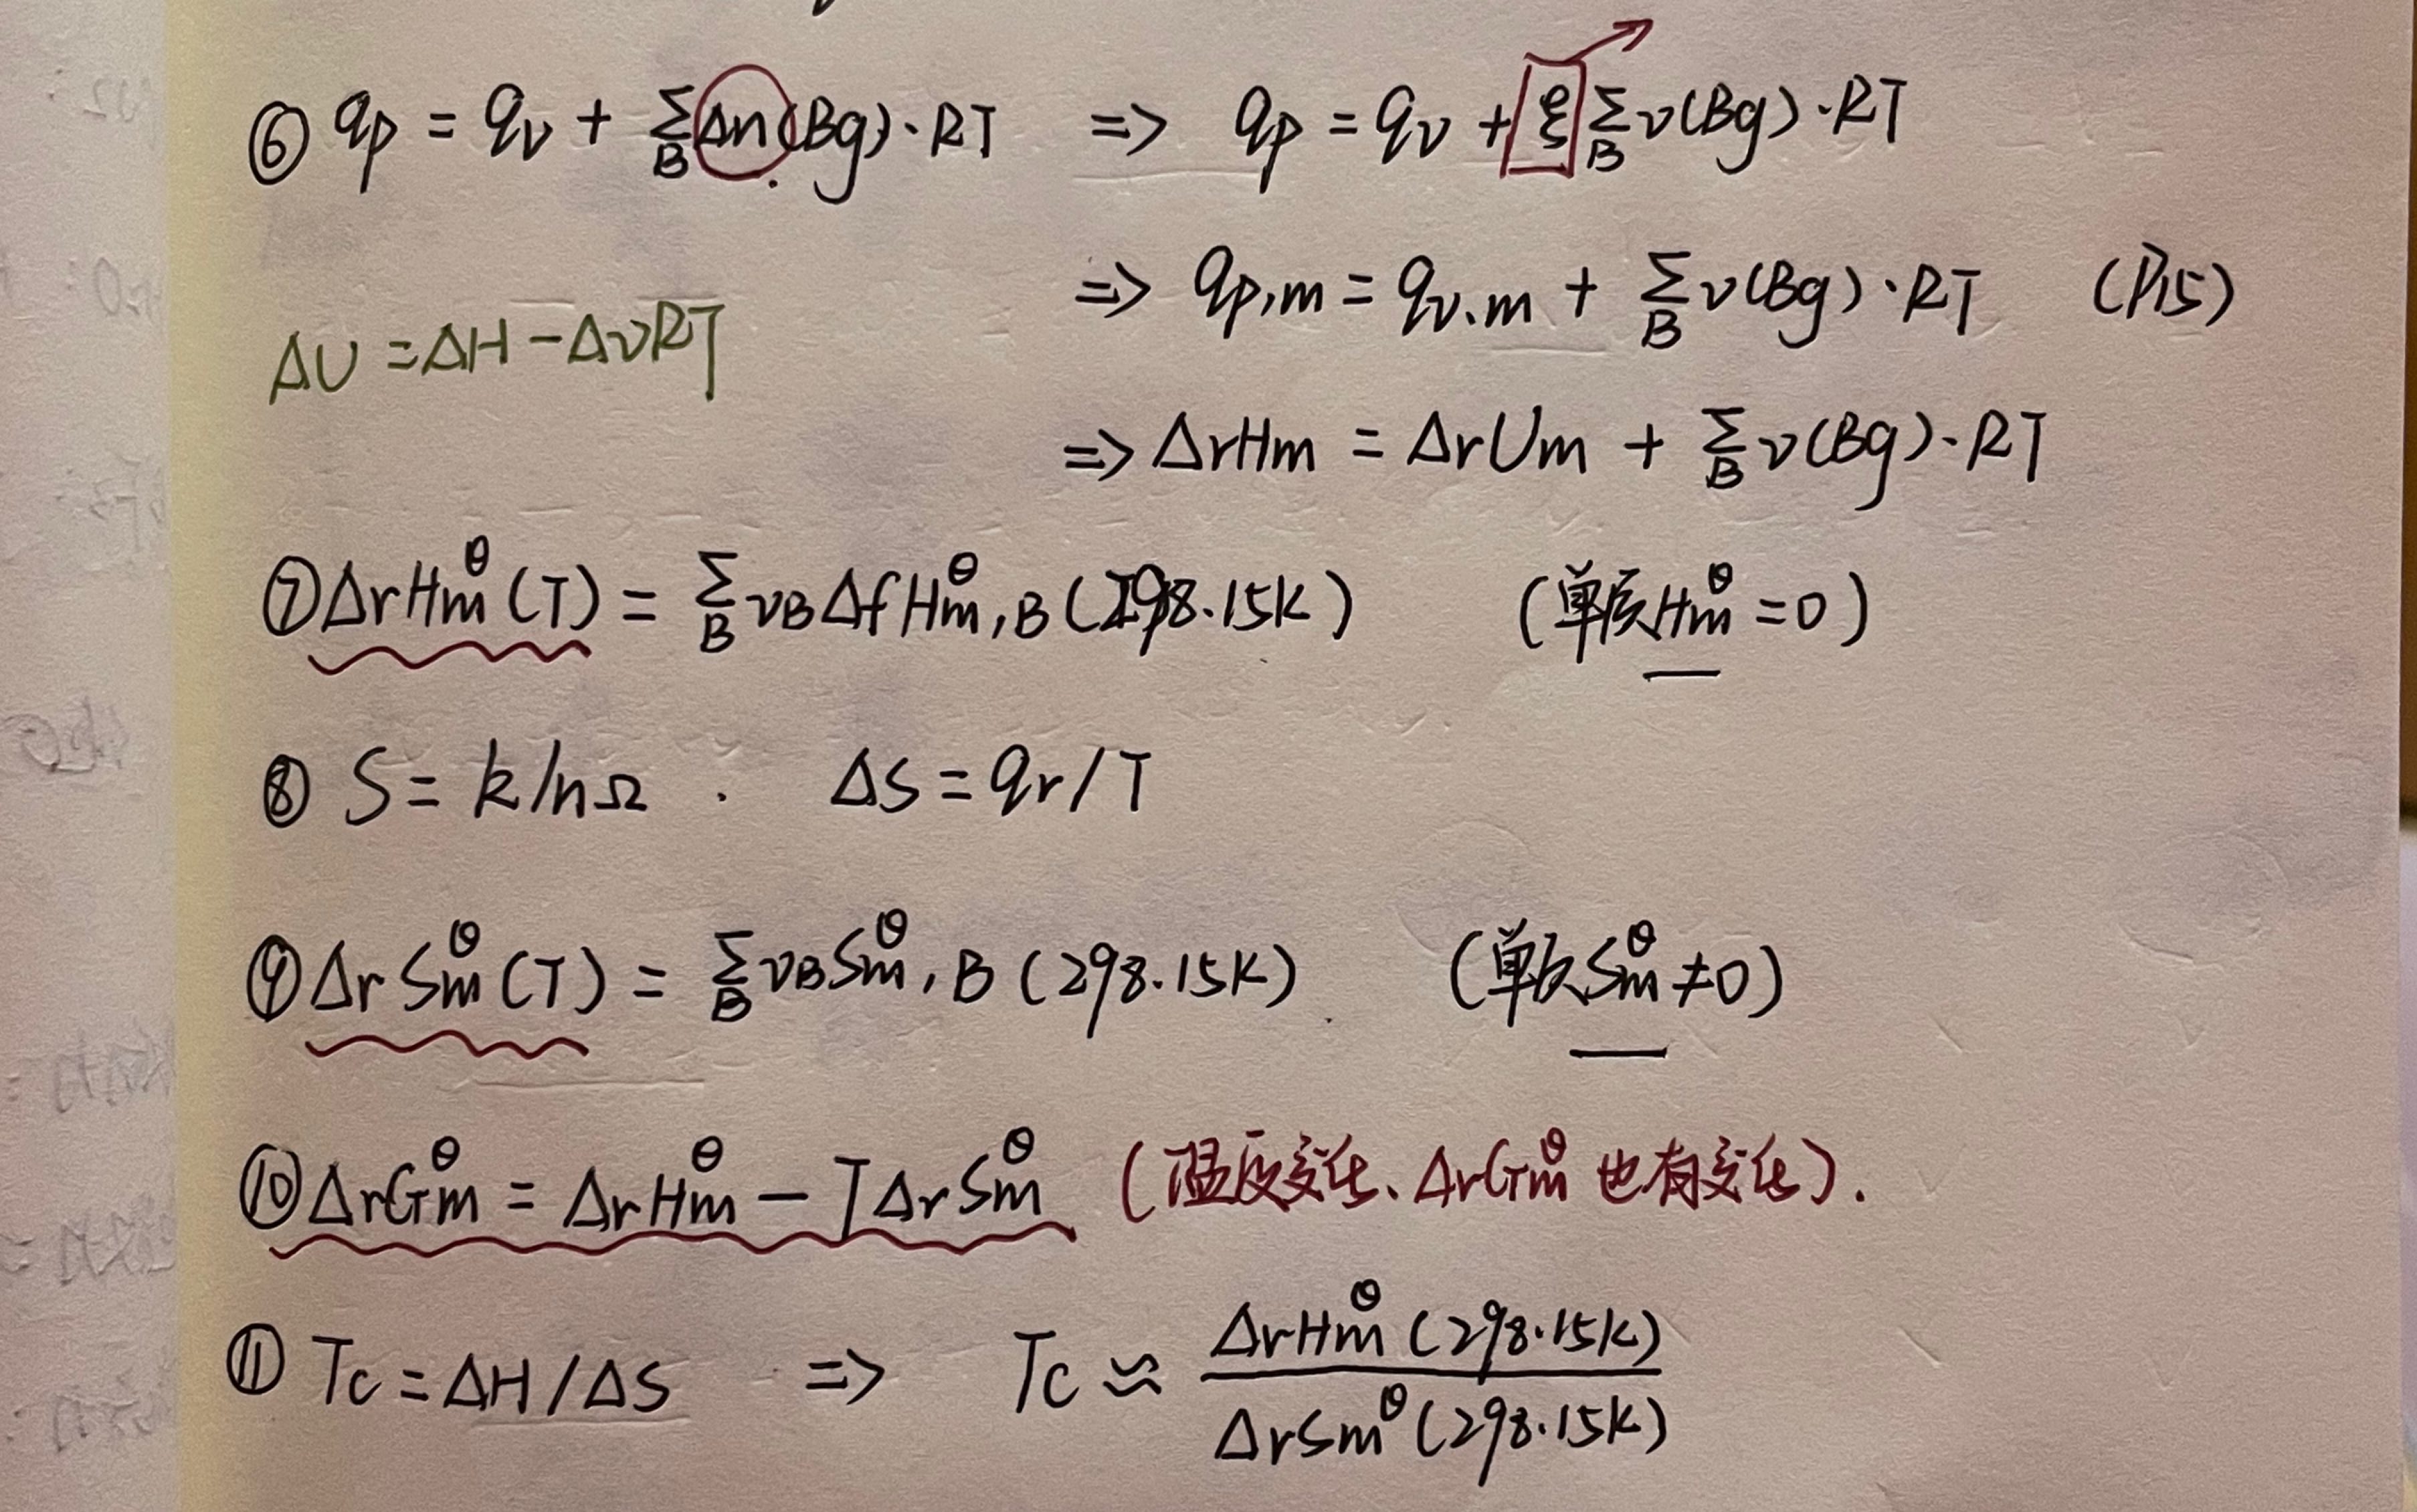 ⑥ qp = qv + ΣB Δn(Bg)·RT => qp = qv + ξ ΣB ν(Bg)·RT
=> qp,m = qv.m + ΣB ν(Bg)·RT (P15)
ΔU = ΔH - ΔνRT
=> ΔrHm = ΔrUm + ΣB ν(Bg)·RT
⑦ ΔrHm^θ(T) = ΣB νB ΔfHm^θ,B (298.15K) (单质Hm^θ = 0)
⑧ S = klnΩ . ΔS = qr/T
⑨ ΔrSm^θ(T) = ΣB νB Sm^θ,B (298.15K) (单质Sm^θ ≠ 0)
⑩ ΔrGm^θ = ΔrHm^θ - TΔrSm^θ (温度变化、ΔrGm^θ 也有变化).
⑪ Tc = ΔH/ΔS => Tc ≈ ΔrHm^θ(298.15K)
ΔrSm^θ(298.15K)